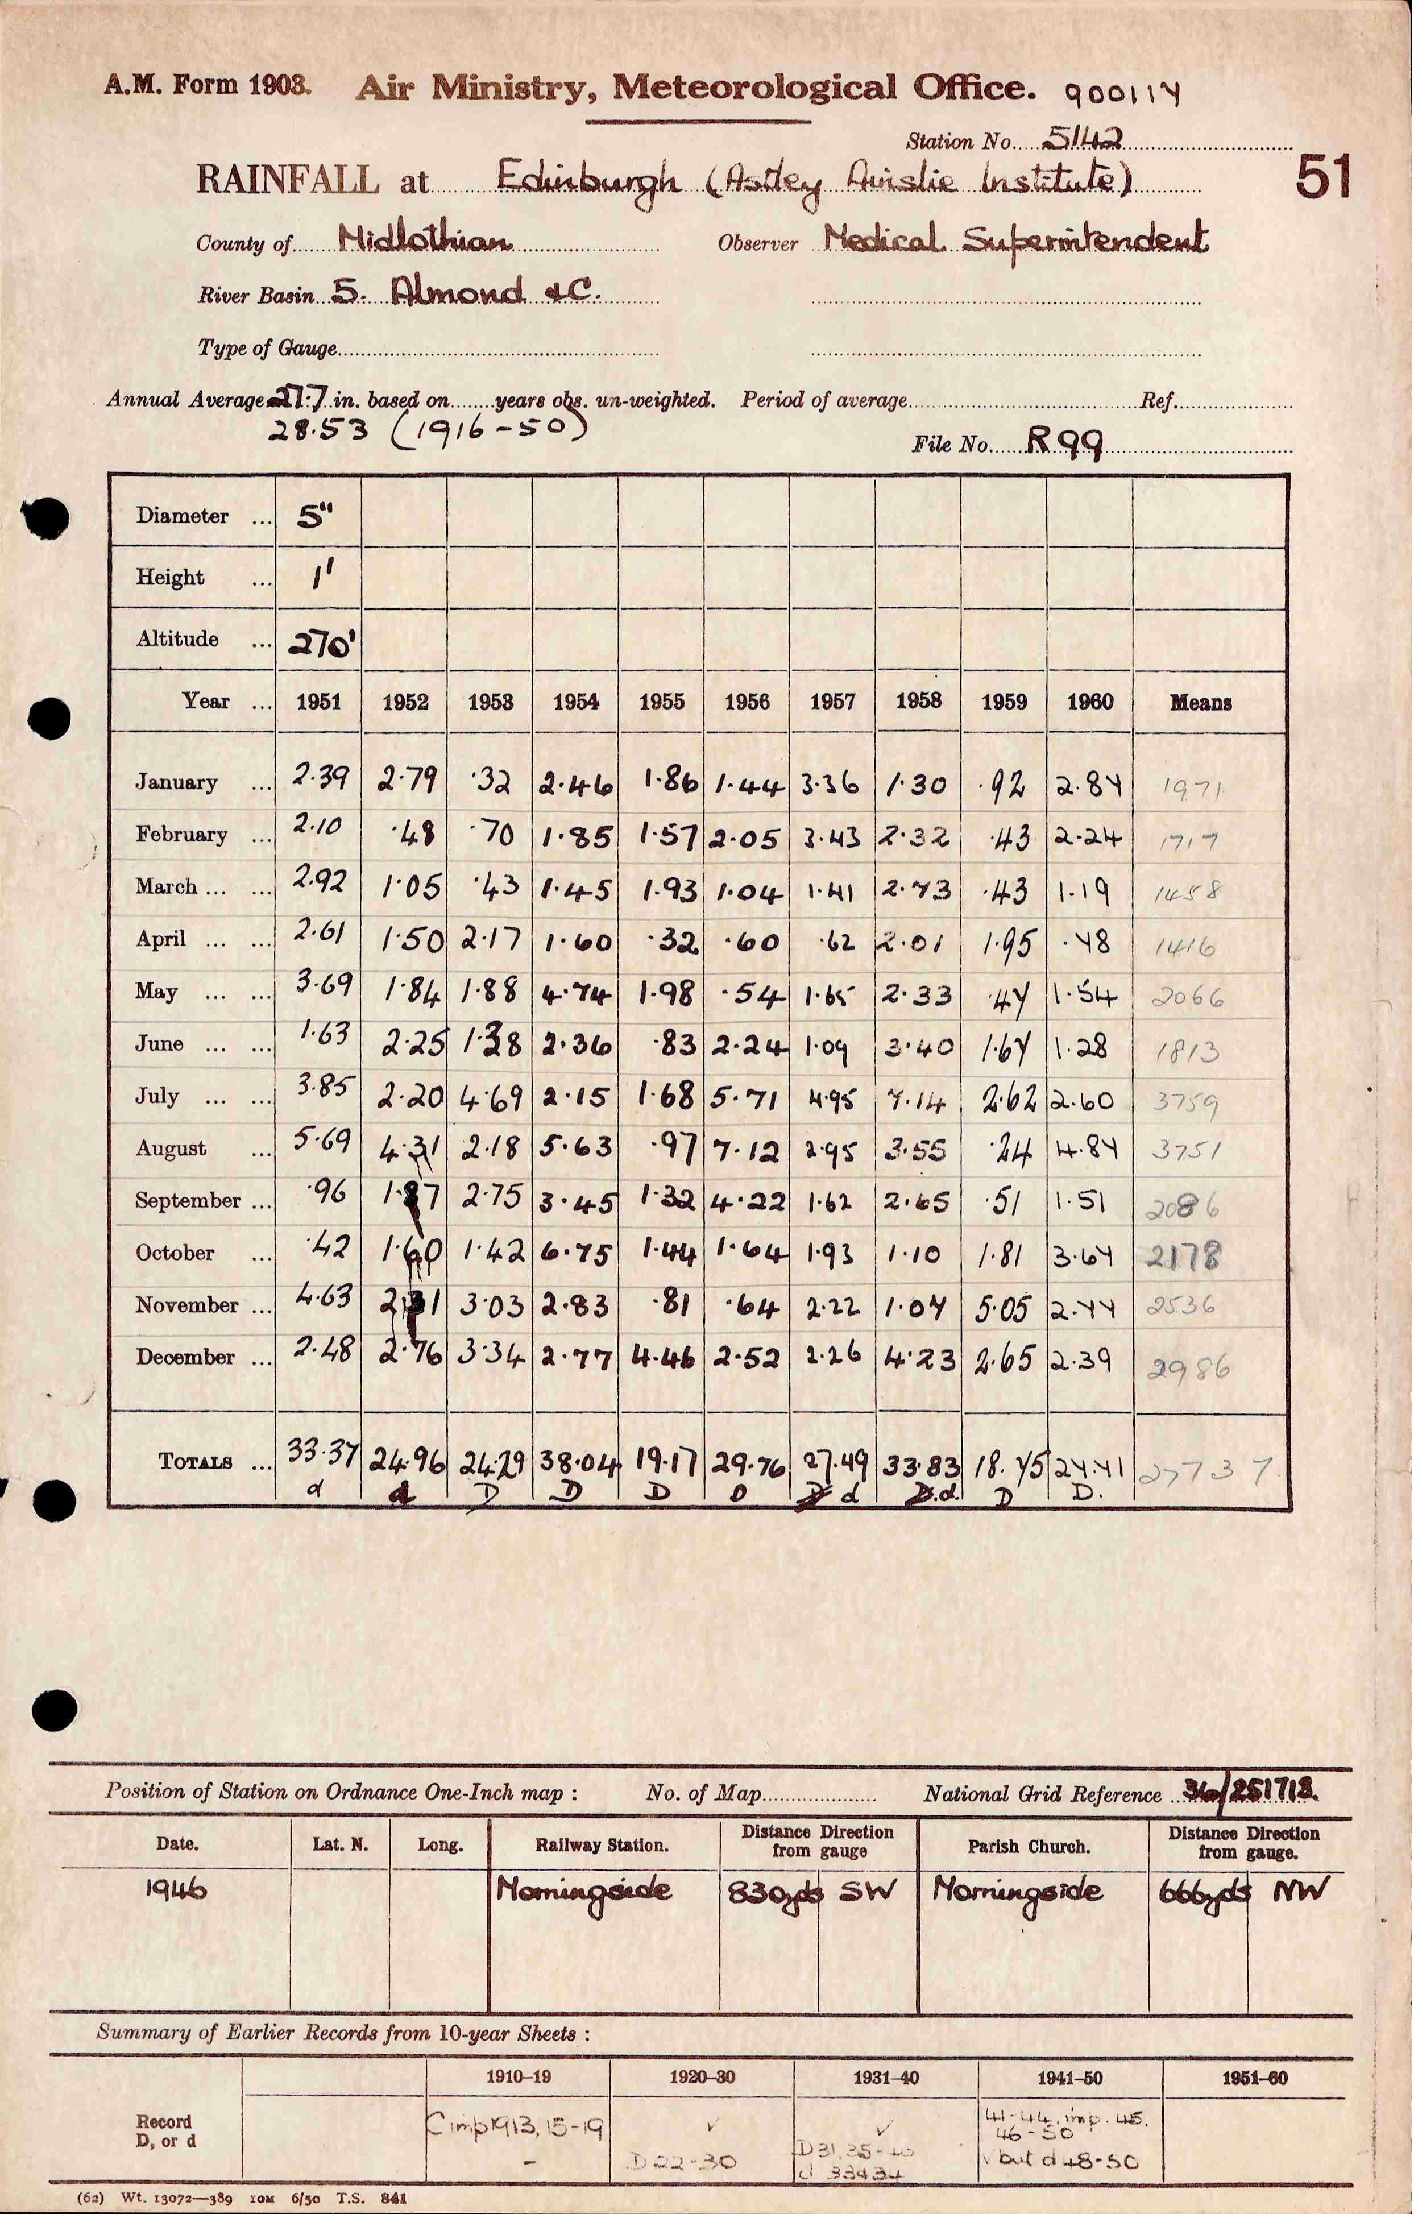 A.M. Form 1903. Air Ministry, Meteorological Office. 900114
Station No. 5142
RAINFALL at Edinburgh (Astley Ainslie Institute) 51
County of Midlothian Observer Medical Superintendent
River Basin 5. Almond &C.
Type of Gauge
Annual Average 27.7 in. based on years obs. un-weighted. Period of average Ref.
28.53 (1916-50)
File No. R99
Diameter ... 5"
Height ... 1'
Altitude ... 270'
Year ... 1951 1952 1953 1954 1955 1956 1957 1958 1959 1960 Means
January ... 2.39 2.79 .32 2.46 1.86 1.44 3.36 1.30 .92 2.84 1971
February ... 2.10 .48 .70 1.85 1.57 2.05 3.43 2.32 .43 2.24 1717
March ... ... 2.92 1.05 .43 1.45 1.93 1.04 1.41 2.73 .43 1.19 1458
April ... ... 2.61 1.50 2.17 1.60 .32 .60 .62 2.01 1.95 .48 1416
May ... ... 3.69 1.84 1.88 4.74 1.98 .54 1.65 2.33 .44 1.54 2066
June ... ... 1.63 2.25 1.38 2.36 .83 2.24 1.09 3.40 1.64 1.28 1813
July ... ... 3.85 2.20 4.69 2.15 1.68 5.71 4.95 7.14 2.62 2.60 3759
August ... 5.69 4.31 2.18 5.63 .97 7.12 2.95 3.55 .24 4.84 3751
September ... .96 1.87 2.75 3.45 1.32 4.22 1.62 2.65 .51 1.51 2086
October ... .42 1.60 1.42 6.75 1.44 1.64 1.93 1.10 1.81 3.64 2178
November ... 4.63 2.31 3.03 2.83 .81 .64 2.22 1.07 5.05 2.44 2536
December ... 2.48 2.76 3.34 2.77 4.46 2.52 2.26 4.23 2.65 2.39 2986
TOTALS ... 33.37 24.96 24.29 38.04 19.17 29.76 27.49 33.83 18.45 24.41 27737
d d D D D D D d D.d. D D.
Position of Station on Ordnance One-Inch map : No. of Map National Grid Reference 36/251712.
Date. Lat. N. Long. Railway Station. Distance Direction from gauge Parish Church. Distance Direction from gauge.
1946 Morningside 830yds SW Morningside 666yds NW
Summary of Earlier Records from 10-year Sheets :
1910–19 1920–30 1931–40 1941–50 1951–60
Record D, or d
C imp 1913, 15-19 ✓ ✓ 41-44, imp. 45, 46-50
- D 22-30 D 31, 35-40 d 33 & 34 ✓ but d 48-50
(62) Wt. 13072—389 10M 6/50 T.S. 841